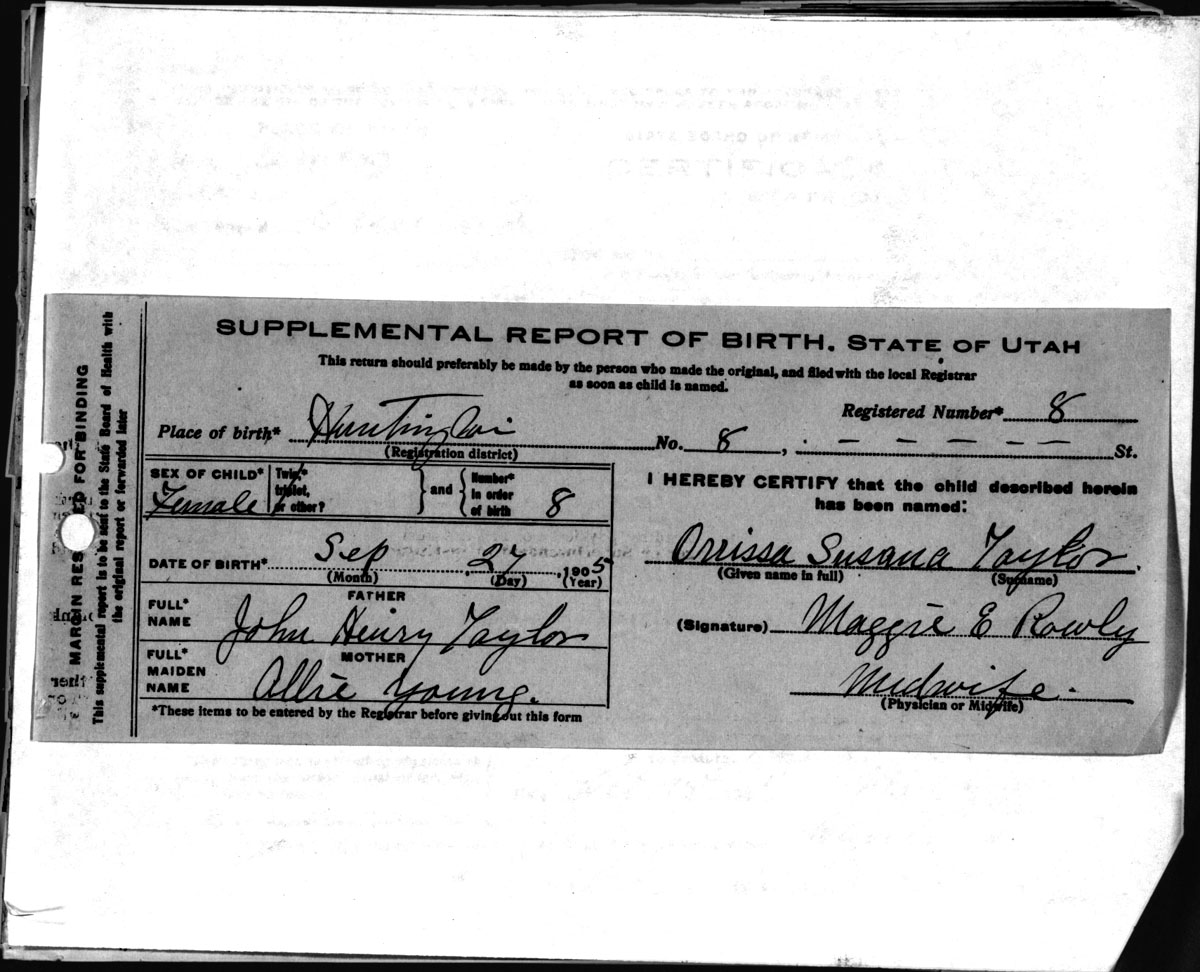 SUPPLEMENTAL REPORT OF BIRTH. STATE OF UTAH
This return should preferably be made by the person who made the original, and filed with the local Registrar
as soon as child is named.
Registered Number* 8
Place of birth* Huntington No. 8, St.
(Registration district)
SEX OF CHILD* Female
Twin,* triplet, or other?
and
Number* in order of birth 8
DATE OF BIRTH* Sep 27, 1905
(Month) (Day) (Year)
FATHER
FULL* NAME John Henry Taylor
MOTHER
FULL* MAIDEN NAME Allie Young.
*These items to be entered by the Registrar before giving out this form
I HEREBY CERTIFY that the child described herein
has been named:
Orrissa Susana Taylor.
(Given name in full) (Surname)
(Signature) Maggie E Rowly
Midwife.
(Physician or Midwife)
MARGIN RES ED FOR BINDING
This supplemental report is to be sent to the State Board of Health with
the original report or forwarded later